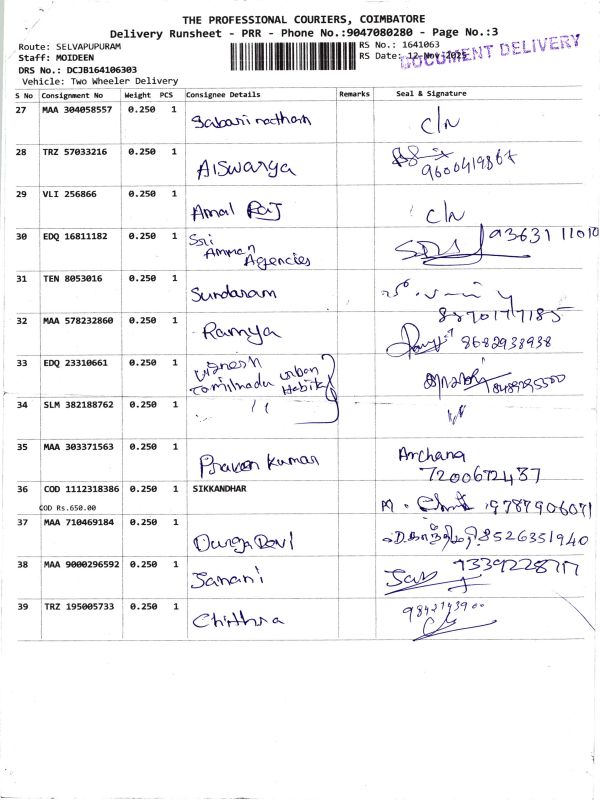 THE PROFESSIONAL COURIERS, COIMBATORE
Delivery Runsheet - PRR - Phone No.:9047080280 - Page No.:3
Route: SELVAPUPURAM
RS No.: 1641063
Staff: MOIDEEN
RS Date: 12-Nov-2025
DOCUMENT DELIVERY
DRS No.: DCJB164106303
Vehicle: Two Wheeler Delivery
S No Consignment No Weight PCS Consignee Details Remarks Seal & Signature
27 MAA 304058557 0.250 1 Sabarinatham C/N
28 TRZ 57033216 0.250 1 Aiswarya
9600419867
29 VLI 256866 0.250 1 Amal Raj C/N
30 EDQ 16811182 0.250 1 Sri
Amman
Agencies
9363111010
31 TEN 8053016 0.250 1 Sundaram
8870177185
32 MAA 578232860 0.250 1 Ramya
8682938938
33 EDQ 23310661 0.250 1 Vignesh
Tamilnadu Urban
Habit
34 SLM 382188762 0.250 1 "
35 MAA 303371563 0.250 1 Praven Kumar Archana
7200672437
36 COD 1112318386 0.250 1 SIKKANDHAR
COD Rs.650.00
9787906071
37 MAA 710469184 0.250 1 Durga Devi 8526351940
38 MAA 9000296592 0.250 1 Janani
39 TRZ 195005733 0.250 1 Chithra